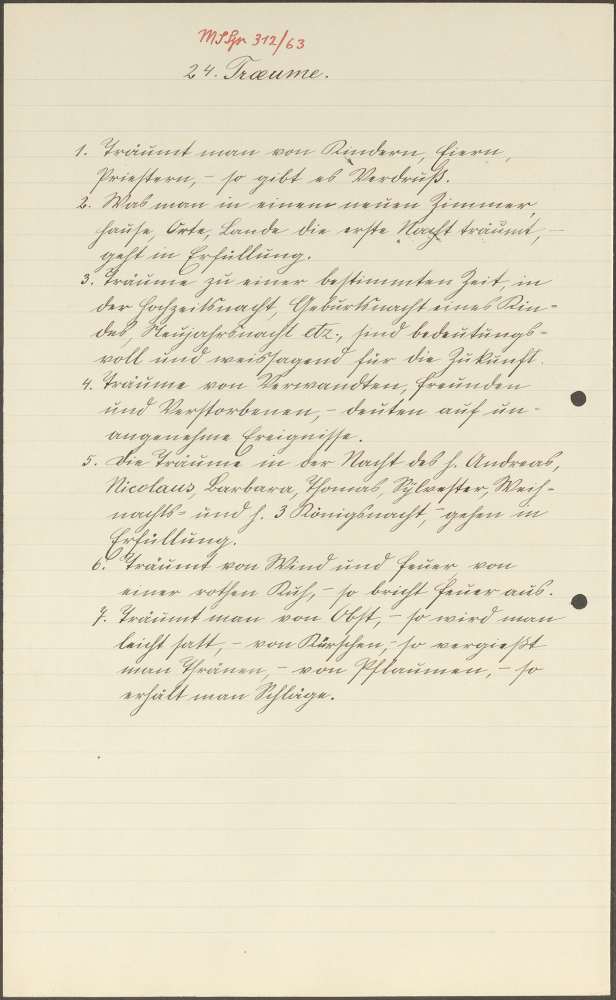 MSGr 312/63
24. Træume.
1. Träumt man von Kindern, Eiern,
Priestern, – so gibt es Verdruß.
2. Was man in einem neuen Zimmer,
Hause, Orte, Lande die erste Nacht träumt, –
geht in Erfüllung.
3. Träume zu einer bestimmten Zeit, in
der Hochzeitsnacht, Geburtsnacht eines Kin-
des, Neujahrsnacht etz., sind bedeutungs-
voll und weissagend für die Zukunft.
4. Träume von Verwandten, Freunden
und Verstorbenen, – deuten auf un-
angenehme Ereignisse.
5. Die Träume in der Nacht des h. Andreas,
Nicolaus, Barbara, Thomas, Sylvester, Weih-
nachts- und h. 3 Königsnacht, – gehen in
Erfüllung.
6. Träumt von Wind und Feuer von
einer rothen Kuh, – so bricht Feuer aus.
7. Träumt man von Obst, – so wird man
leicht satt, – von Kürschen, so vergießt
man Thränen, – von Pflaumen, – so
erhält man Schläge.